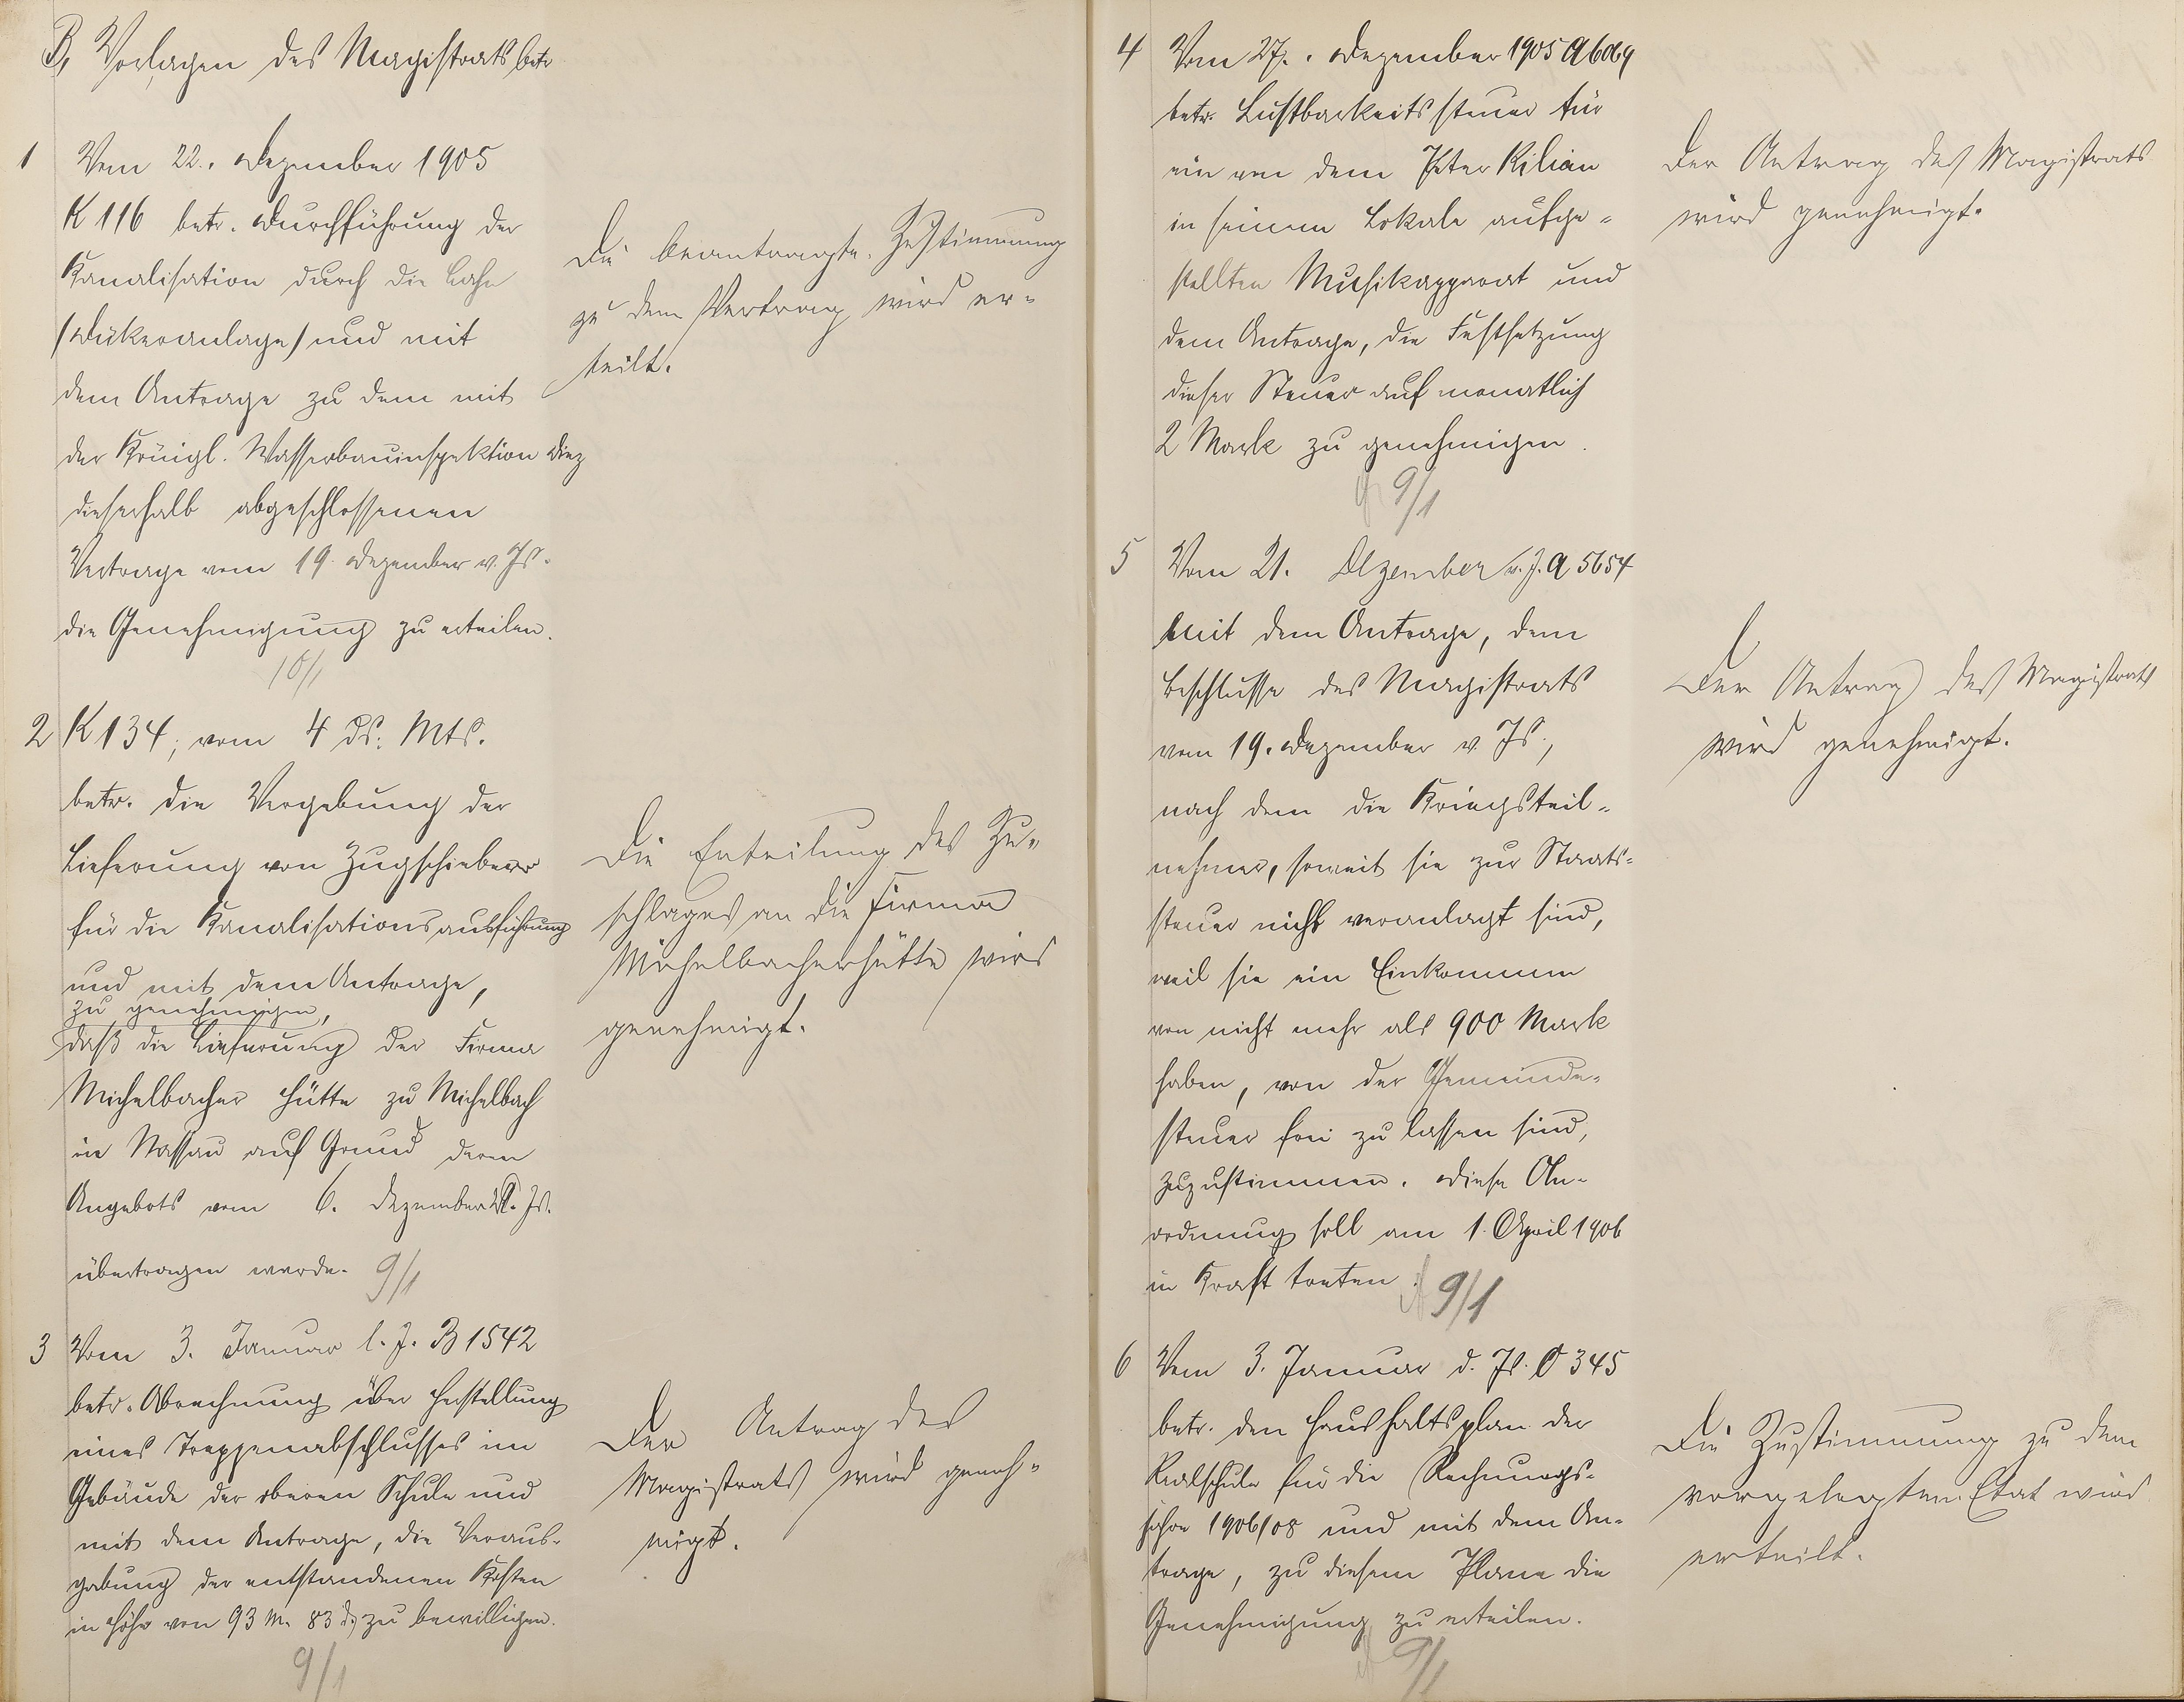 B, Vorlagen des Magistrats betr
1 Vom 22. Dezember 1905
K 116 betr. Durchführung der
Kanalisation durch die Lahn
(Dükeranlage) und mit
dem Antrage zu dem mit
der Königl. Wasserbauinspektion Diez
dieserhalb abgeschlossenen
Vertrage vom 19. Dezember v. Js.
die Genehmigung zu erteilen.
10/1
Die beantragte Zustimmung
zu dem Vertrag wird er-
teilt.
2 K 134, vom 4 ds. Mts.
betr. die Vergebung der
Lieferung von Zugschieber
für die Kanalisationsausführung
und mit dem Antrage,
zu genehmigen,
daß die Lieferung der Firma
Michelbacher Hütte zu Michelbach
in Nassau auf Grund deren
Angebots vom 6. Dezember v. Js.
übertragen werde. 9/1
Die Erteilung des Zu-
schlages an die Firma
Michelbacherhütte wird
genehmigt.
3 Vom 3. Januar l. J. B 1542
betr. Abrechnung über Herstellung
eines Treppenabschlusses im
Gebäude der oberen Schule und
mit dem Antrage, die Veraus-
gabung der entstandenen Kosten
in Höhe von 93 M. 83 d zu bewilligen.
9/1
Der Antrag des
Magistrats wird geneh-
migt.
4 Vom 27. Dezember 1905 A 6069
betr. Lustbarkeitssteuer für
ein von dem Peter Kilian
in seinem Lokale aufge-
stellten Musikapparat und
dem Antrage, die Festsetzung
dieser Steuer auf monatlich
2 Mark zu genehmigen.
9/1
Der Antrag des Magistrats
wird genehmigt.
5 Vom 21. Dezember v. J. A 5654
mit dem Antrage, dem
Beschlusse des Magistrats
vom 19. Dezember v. Js.,
nach dem die Kriegsteil-
nehmer, soweit sie zur Staats-
steuer nicht veranlagt sind,
weil sie ein Einkommen
von nicht mehr als 900 Mark
haben, von der Gemeinde-
steuer frei zu lassen sind,
zuzustimmen. Diese An-
ordnung soll am 1. April 1906
in Kraft treten. 9/1
Der Antrag des Magistrats
wird genehmigt.
6 Vom 3. Januar d. Js. O 345
betr. den Haushaltsplan der
Realschule für die Rechnungs-
jahre 1906/08 und mit dem An-
trage, zu diesem Plane die
Genehmigung zu erteilen.
9/1
Die Zustimmung zu dem
vorgelegten Etat wird
erteilt.